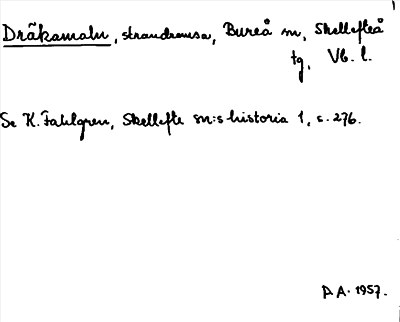 Dräkamaln, strandremsa, Bureå sn, Skellefteå
tg, Vb. l.
Se K. Fahlgren, Skellefte sn:s historia 1, s. 276.
D.A. 1957.